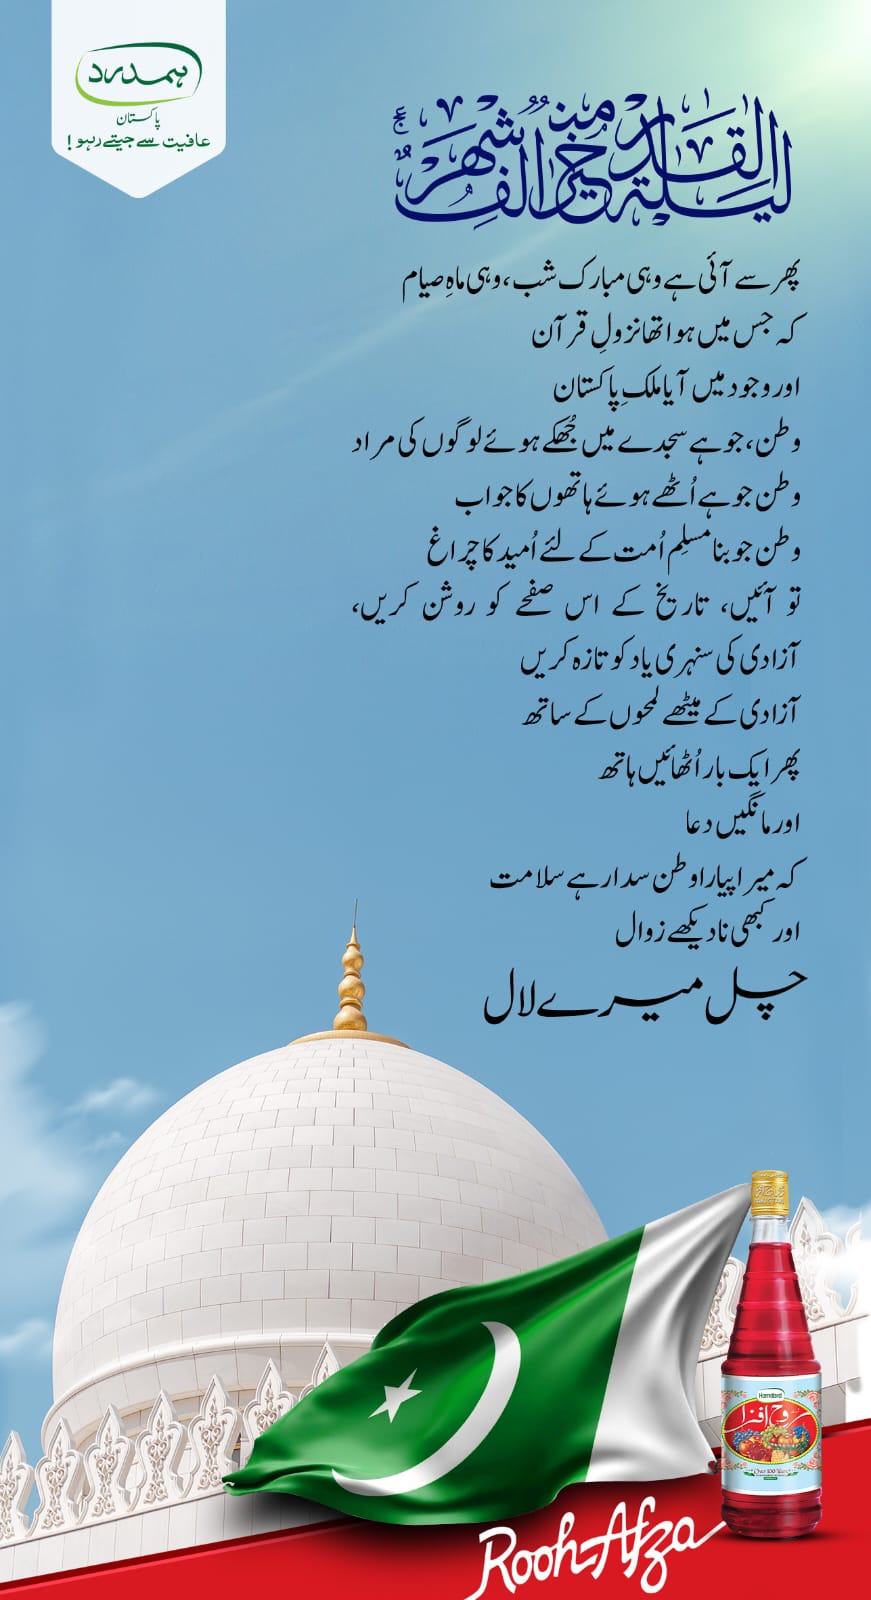 ہمدرد
پاکستان
عافیت سے جیتے رہو !
لیلة القدر خیر من الف شهر
پھر سے آئی ہے وہی مبارک شب، وہی ماہِ صیام
کہ جس میں ہوا تھا نزولِ قرآن
اور وجود میں آیا ملکِ پاکستان
وطن، جو ہے سجدے میں جُھکے ہوئے لوگوں کی مراد
وطن جو ہے اُٹھے ہوئے ہاتھوں کا جواب
وطن جو بنا مسلم اُمت کے لئے اُمید کا چراغ
تو آئیں، تاریخ کے اس صفحے کو روشن کریں،
آزادی کی سنہری یاد کو تازہ کریں
آزادی کے میٹھے لمحوں کے ساتھ
پھر ایک بار اُٹھائیں ہاتھ
اور مانگیں دعا
کہ میرا پیارا وطن سدا رہے سلامت
اور کبھی نا دیکھے زوال
چل میرے لال
Hamdard
روح افزا
Over 100 Years
Rooh Afza